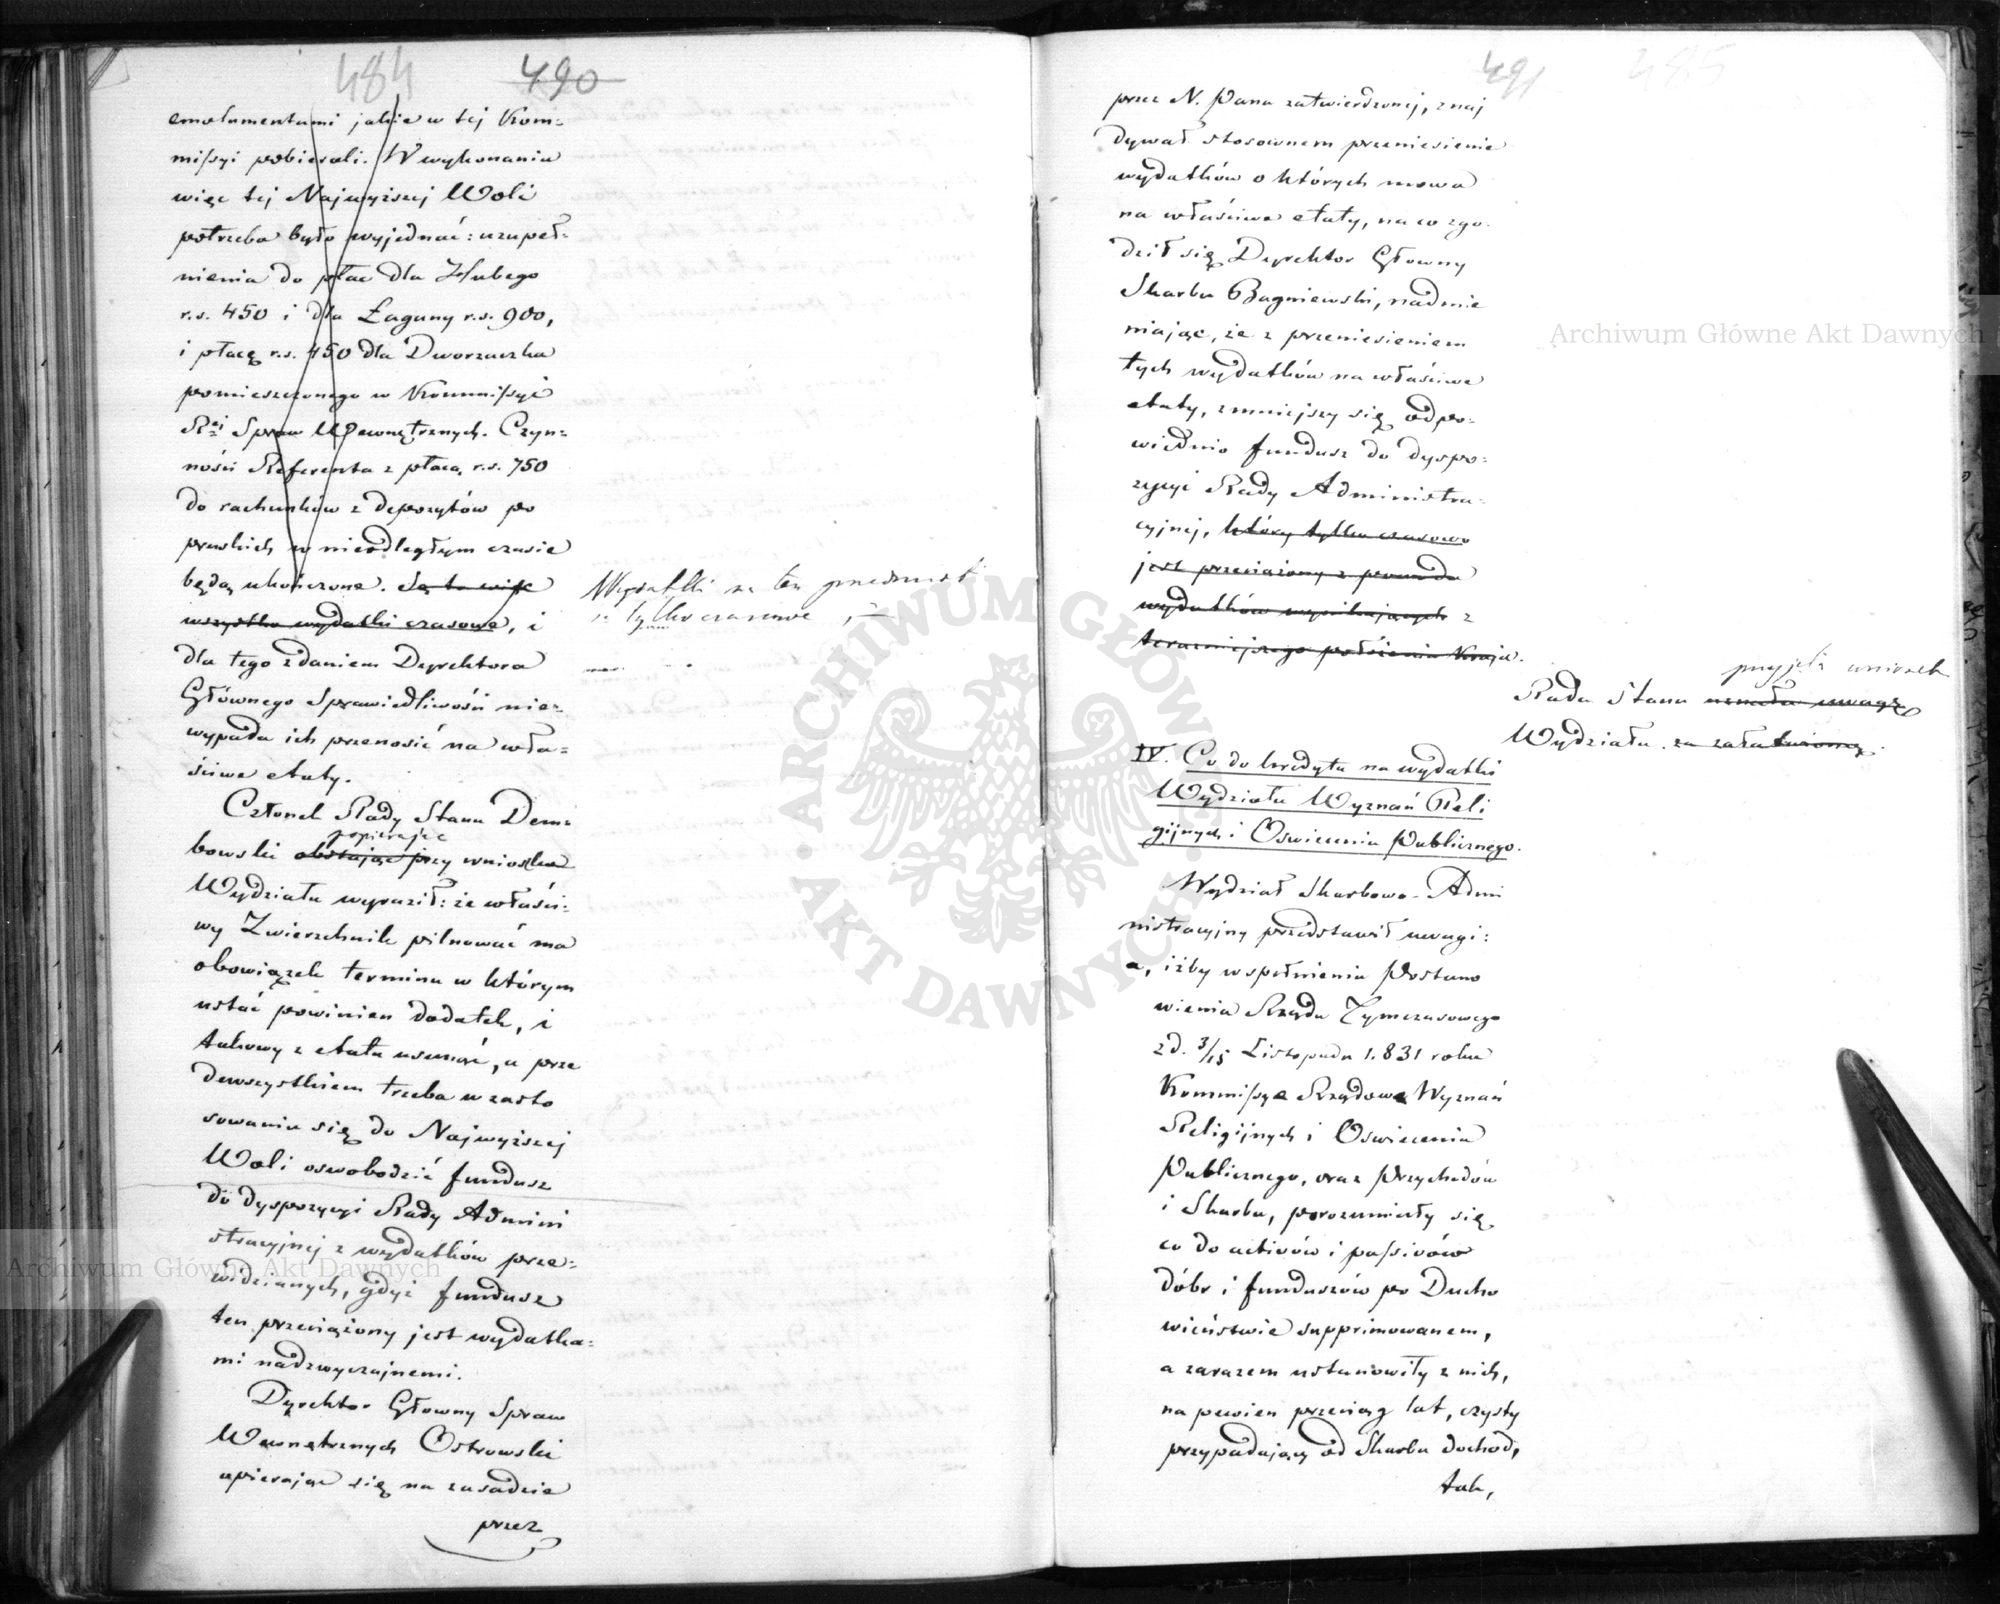 484 490
emolumentami jakie w tej Kom=
missyi pobierali. W wykonaniu
więc tej Najwyższej Woli
potrzeba było wyjednać: uzupeł=
nienia do płac dla Hubego
r.s. 450 i dla Łaguny r.s. 900,
i płacę r.s. 450 dla Dworzaczka
pomieszczonego w Kommissyi
R.ej Spraw Wewnętrznych. Czyn=
ności Referenta z płacą r.s. 750
do rachunków z depozytów po
pruskich w nieodległym czasie
będą ukończone. Są to więc
wszystko wydatki czasowe, i
Wydatki na ten przedmiot
są tylko czasowe,
dla tego zdaniem Dyrektora
Głównego Sprawiedliwości nie=
wypada ich przenosić na wła=
ściwe etaty.
Członek Rady Stanu Dem=
popierając
bowski obstając przy wniosku
Wydziału wyraził: że właści=
wy Zwierzchnik pilnować ma
obowiązek terminu w którym
ustać powinien dodatek, i
takowy z etatu usunąć, a prze
dewszystkiem trzeba w zasto
sowaniu się do Najwyższej
Woli oswobodzić fundusz
do dyspozycyi Rady Admini
stracyjnej z wydatków prze=
widzianych, gdyż fundusz
ten przeciążony jest wydatka=
mi nadzwyczajnemi.
Dyrektor Główny Spraw
Wewnętrznych Ostrowski
opierając się na zasadzie
przez
491 485
przez N. Pana zatwierdzonej, znaj
dywał stosownem przeniesienie
wydatków o których mowa
na właściwe etaty, na co zgo.
dził się Dyrektor Główny
Skarbu Bagniewski, nadmie
niając, że z przeniesieniem
tych wydatków na właściwe
etaty, zmniejszy się odpo=
wiednio fundusz do dyspo=
zycyi Rady Administra=
cyjnej, który tylko czasowo
jest przeciążony z powodu
wydatków wynikających z
teraźniejszego położenia Kraju.
przyjęła wniosek
Rada Stanu uznała uwagę
Wydziału za załatwioną.
IV. Co do kredytu na wydatki
Wydziału Wyznań Reli
gijnych i Oświecenia Publicznego.
Wydział Skarbowo-Admi
nistracyjny przedstawił uwagi:
a, iżby w spełnieniu Postano
wienia Rządu Tymczasowego
z d. 3/15 Listopada 1.831 roku
Kommissye Rządowe Wyznań
Religijnych i Oświecenia
Publicznego, oraz Przychodów
i Skarbu, porozumiały się
co do activów i passivów
dóbr i funduszów po Ducho
wieństwie supprimowanem,
a zarazem ustanowiły z nich,
na pewien przeciąg lat, czysty
przypadający od Skarbu dochod,
tak,
Archiwum Główne Akt Dawnych
Archiwum Główne Akt Dawnych
ARCHIWUM GŁÓWNE · AKT DAWNYCH ·